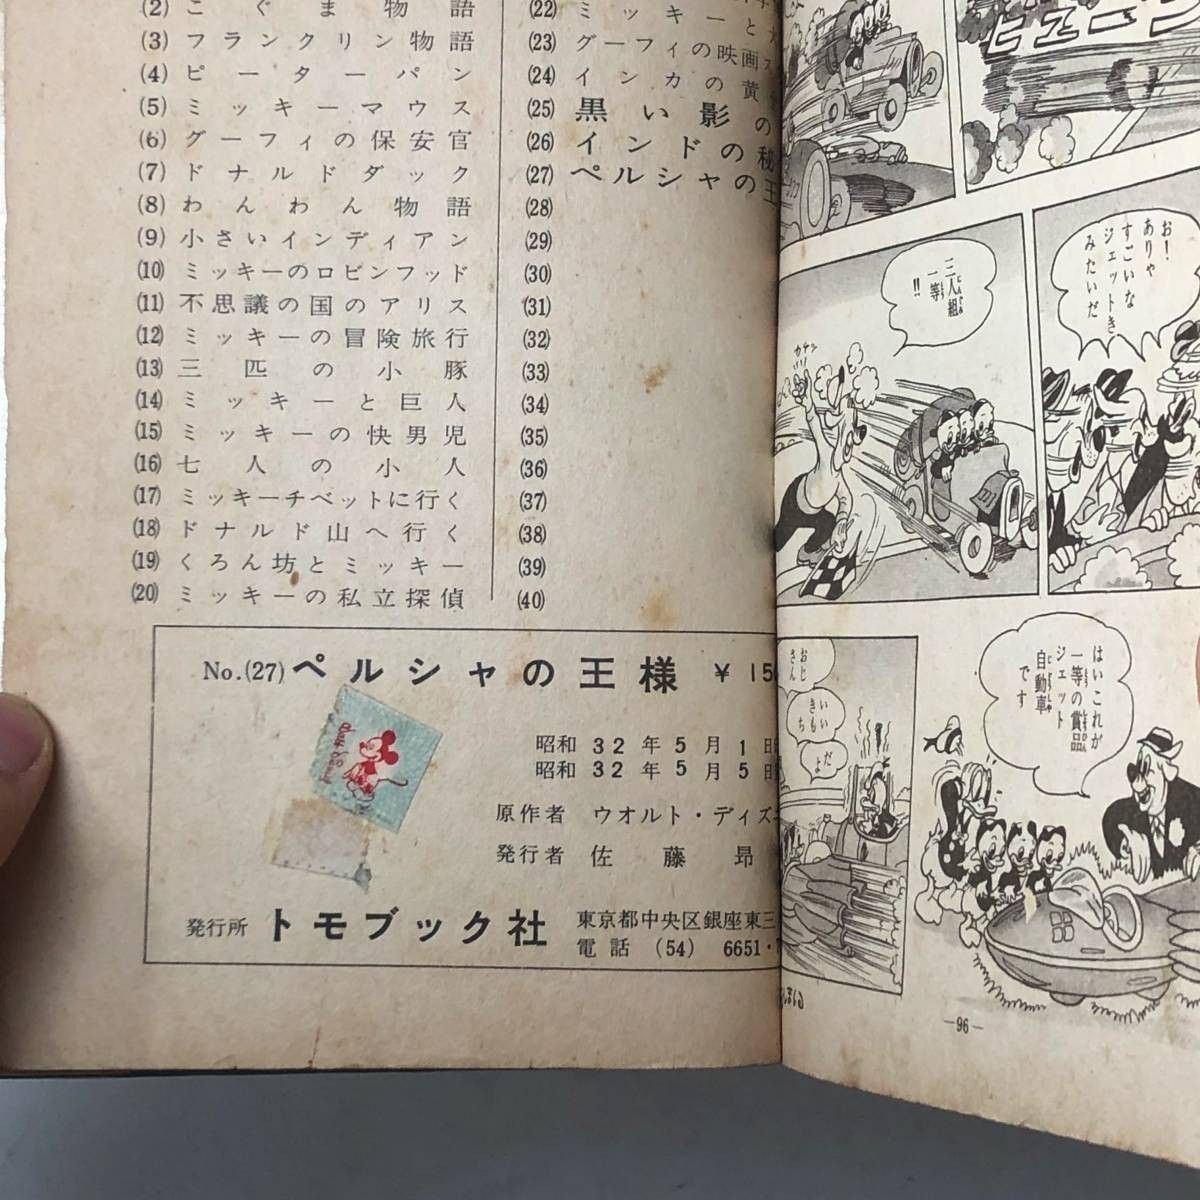 (2) こぐま物語
(3) フランクリン物語
(4) ピーターパン
(5) ミッキーマウス
(6) グーフィの保安官
(7) ドナルドダック
(8) わんわん物語
(9) 小さいインディアン
(10) ミッキーのロビンフッド
(11) 不思議の国のアリス
(12) ミッキーの冒険旅行
(13) 三匹の小豚
(14) ミッキーと巨人
(15) ミッキーの快男児
(16) 七人の小人
(17) ミッキーチベットに行く
(18) ドナルド山へ行く
(19) くろん坊とミッキー
(20) ミッキーの私立探偵
(22) ミッキーと
(23) グーフィの映画
(24) インカの黄
(25) 黒い影の
(26) インドの秘
(27) ペルシャの王
(28)
(29)
(30)
(31)
(32)
(33)
(34)
(35)
(36)
(37)
(38)
(39)
(40)
No.(27) ペルシャの王様 ¥ 150
昭和 32 年 5 月 1 日
昭和 32 年 5 月 5 日
原作者 ウオルト・ディズ
発行者 佐藤昂
発行所 トモブック社
東京都中央区銀座東三
電話 (54) 6651・
三人組
一等
!!
お!
ありゃ
すごいな
ジェットき
みたいだ
おじ
さん
いい
きも
ち
だ
よ
はいこれが
一等の賞品
ジェット
自動車
です
-96-